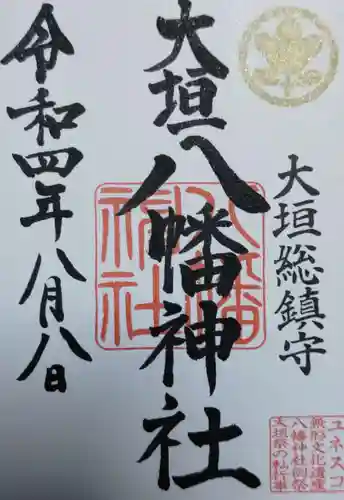 大垣総鎮守
大垣八幡神社
八幡神社
令和四年八月八日
ユネスコ
無形文化遺産
八幡神社例祭
大垣祭の軕行事